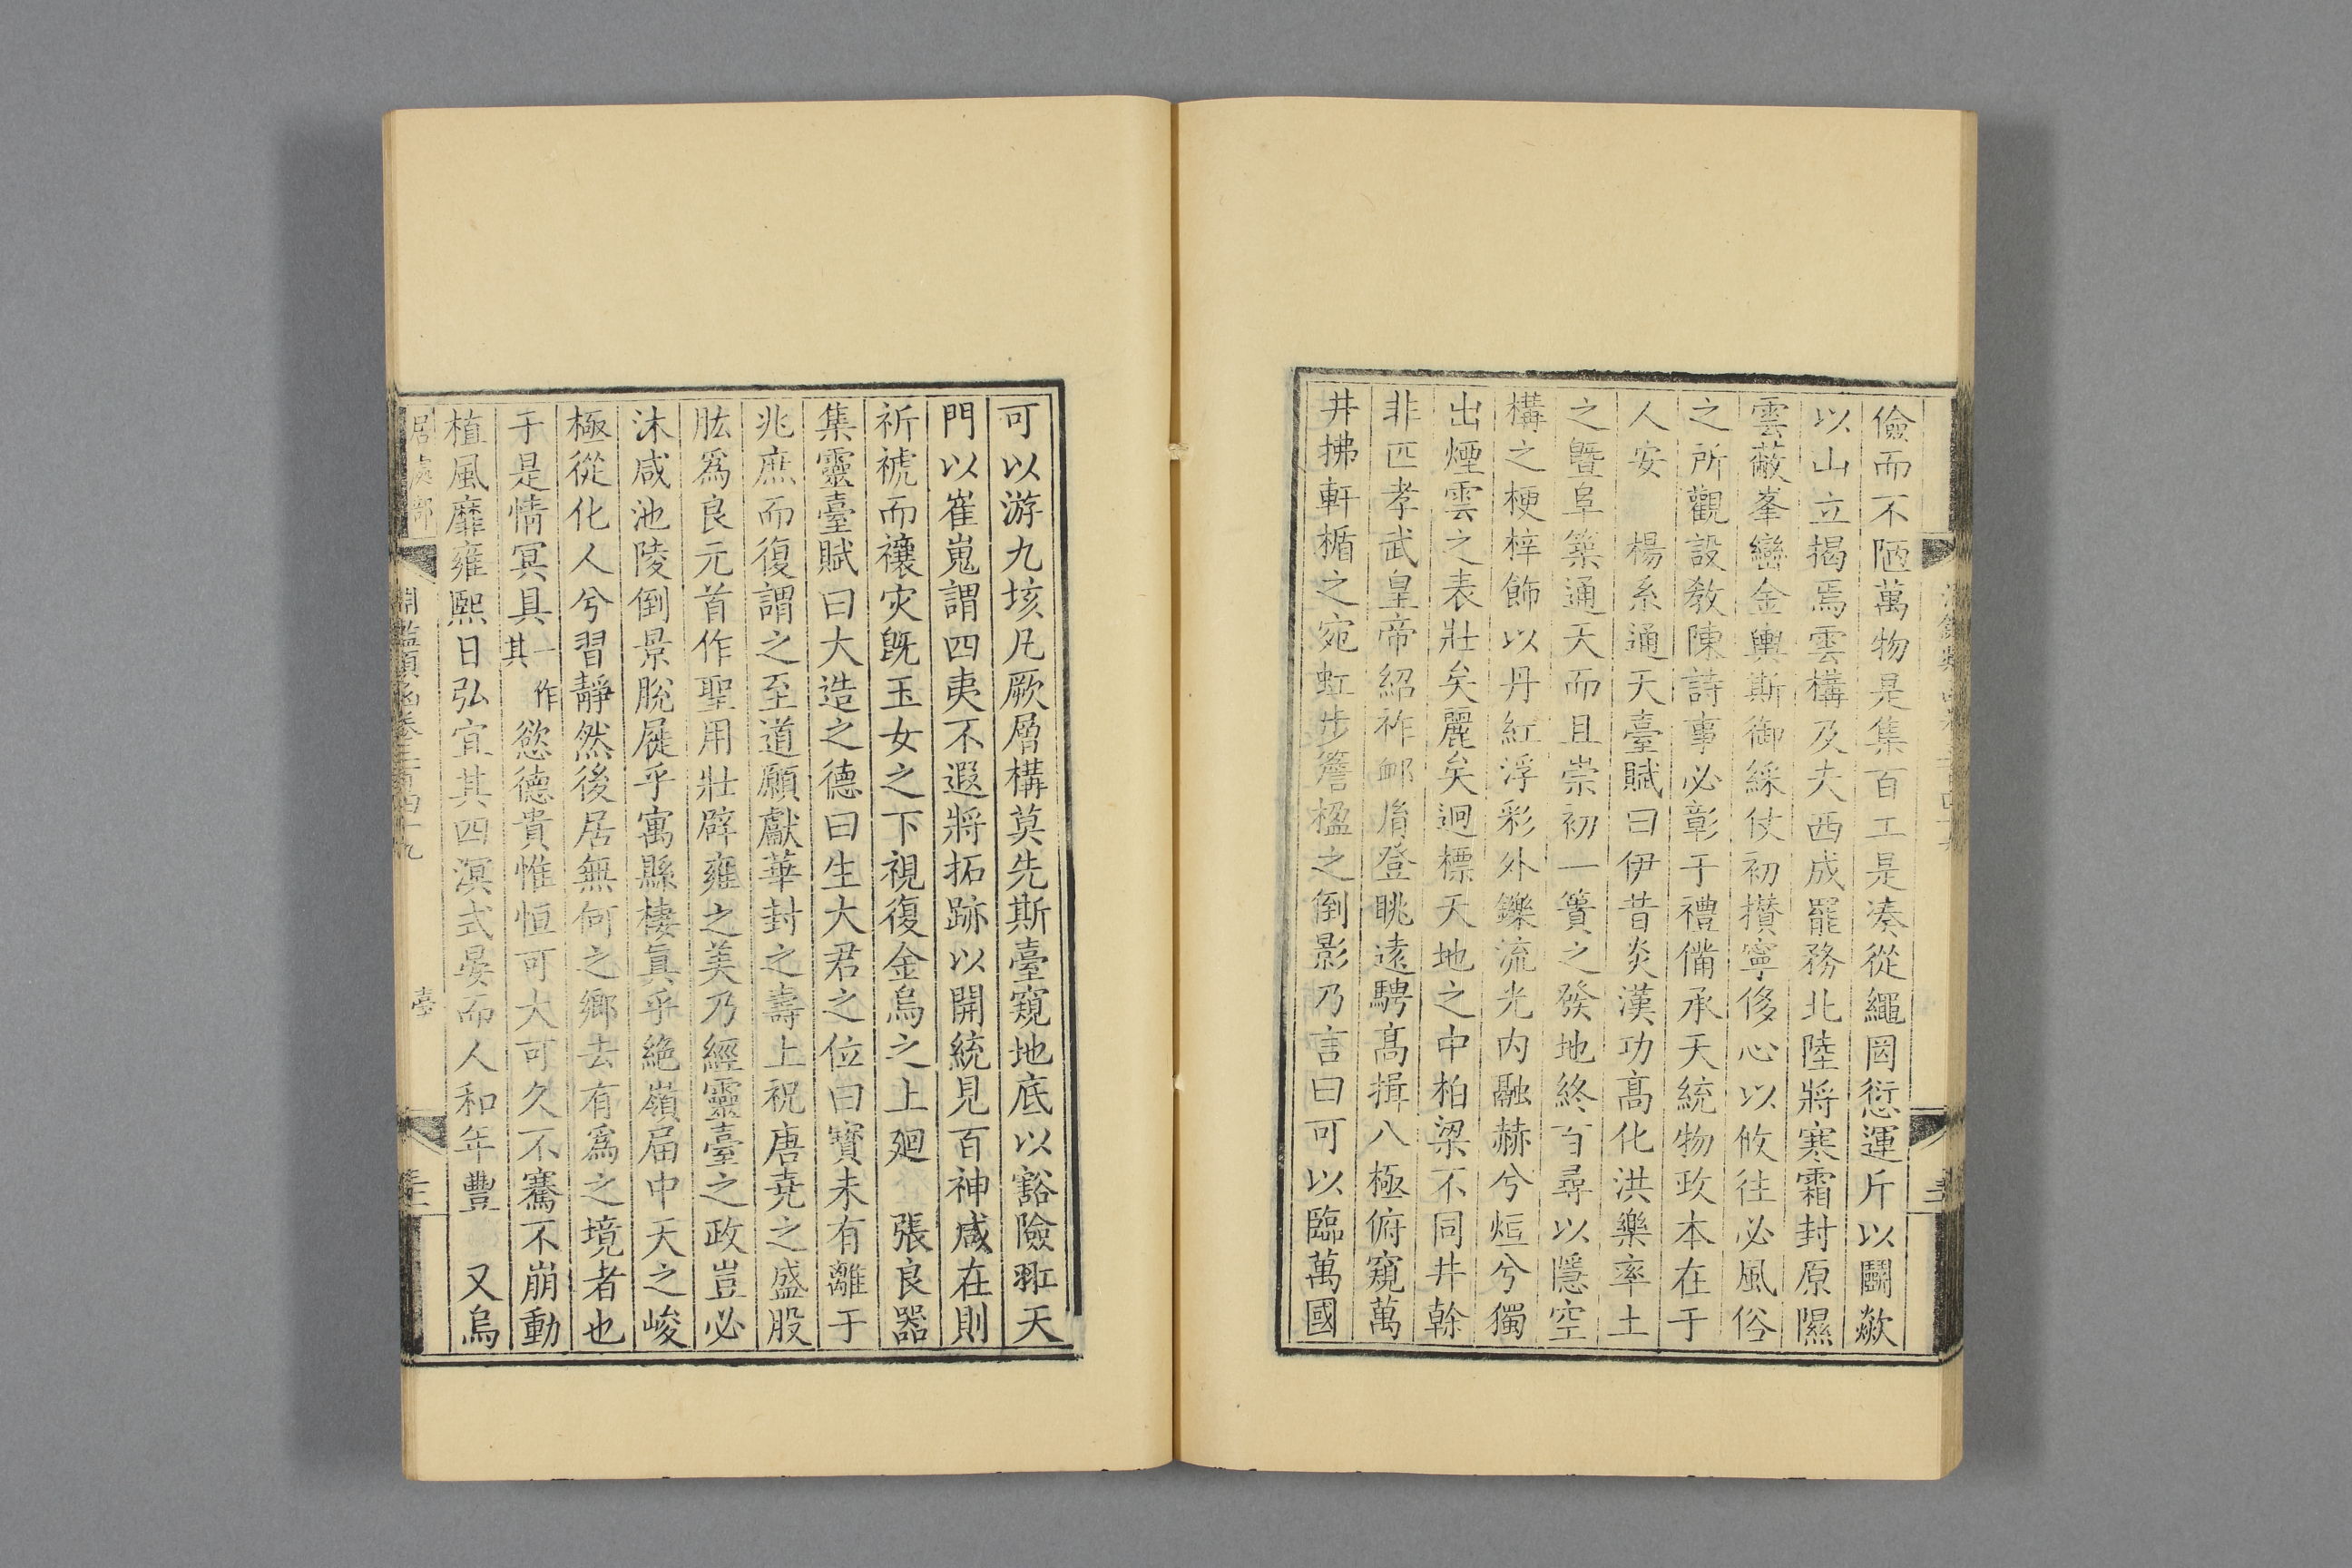 儉而不陋萬物是集百工是湊從繩罔愆運斤以鬬歘
以山立揭焉雲構及夫西成罷務北陸將寒霜封原隰
雲蔽峯巒金輿斯御綵仗初攢寧侈心以攸往必風俗
之所觀設教陳詩事必彰于禮備承天統物政本在于
人安　楊系通天臺賦曰伊昔炎漢功高化洪樂率土
之暨阜築通天而且崇初一簣之發地終百尋以隱空
構之梗梓飾以丹紅浮彩外鑠流光内融赫兮烜兮獨
出煙雲之表壯矣麗矣迥標天地之中柏梁不同井榦
非匹孝武皇帝紹祚邮胤登眺遠騁高揖八極俯窺萬
井拂軒楯之宛虹步簷楹之倒影乃言曰可以臨萬國
可以游九垓凡厥層構莫先斯臺窺地底以豁險羾天
門以崔嵬謂四夷不遐將拓跡以開統見百神咸在則
祈禠而禳灾既玉女之下視復金烏之上廻　張良器
集靈臺賦曰大造之德曰生大君之位曰寶未有離于
兆庶而復謂之至道願獻華封之壽上祝唐堯之盛股
肱爲良元首作聖用壯辟雍之美乃經靈臺之政豈必
沐咸池陵倒景脫屣乎寓縣棲眞乎絶嶺届中天之峻
極從化人兮習靜然後居無何之鄉去有爲之境者也
于是情冥具一作其慾德貴惟恒可大可久不騫不崩動
植風靡雍熙日弘宜其四溟式晏而人和年豐　又烏
居處部
淵鑑類函卷三百四十九
臺